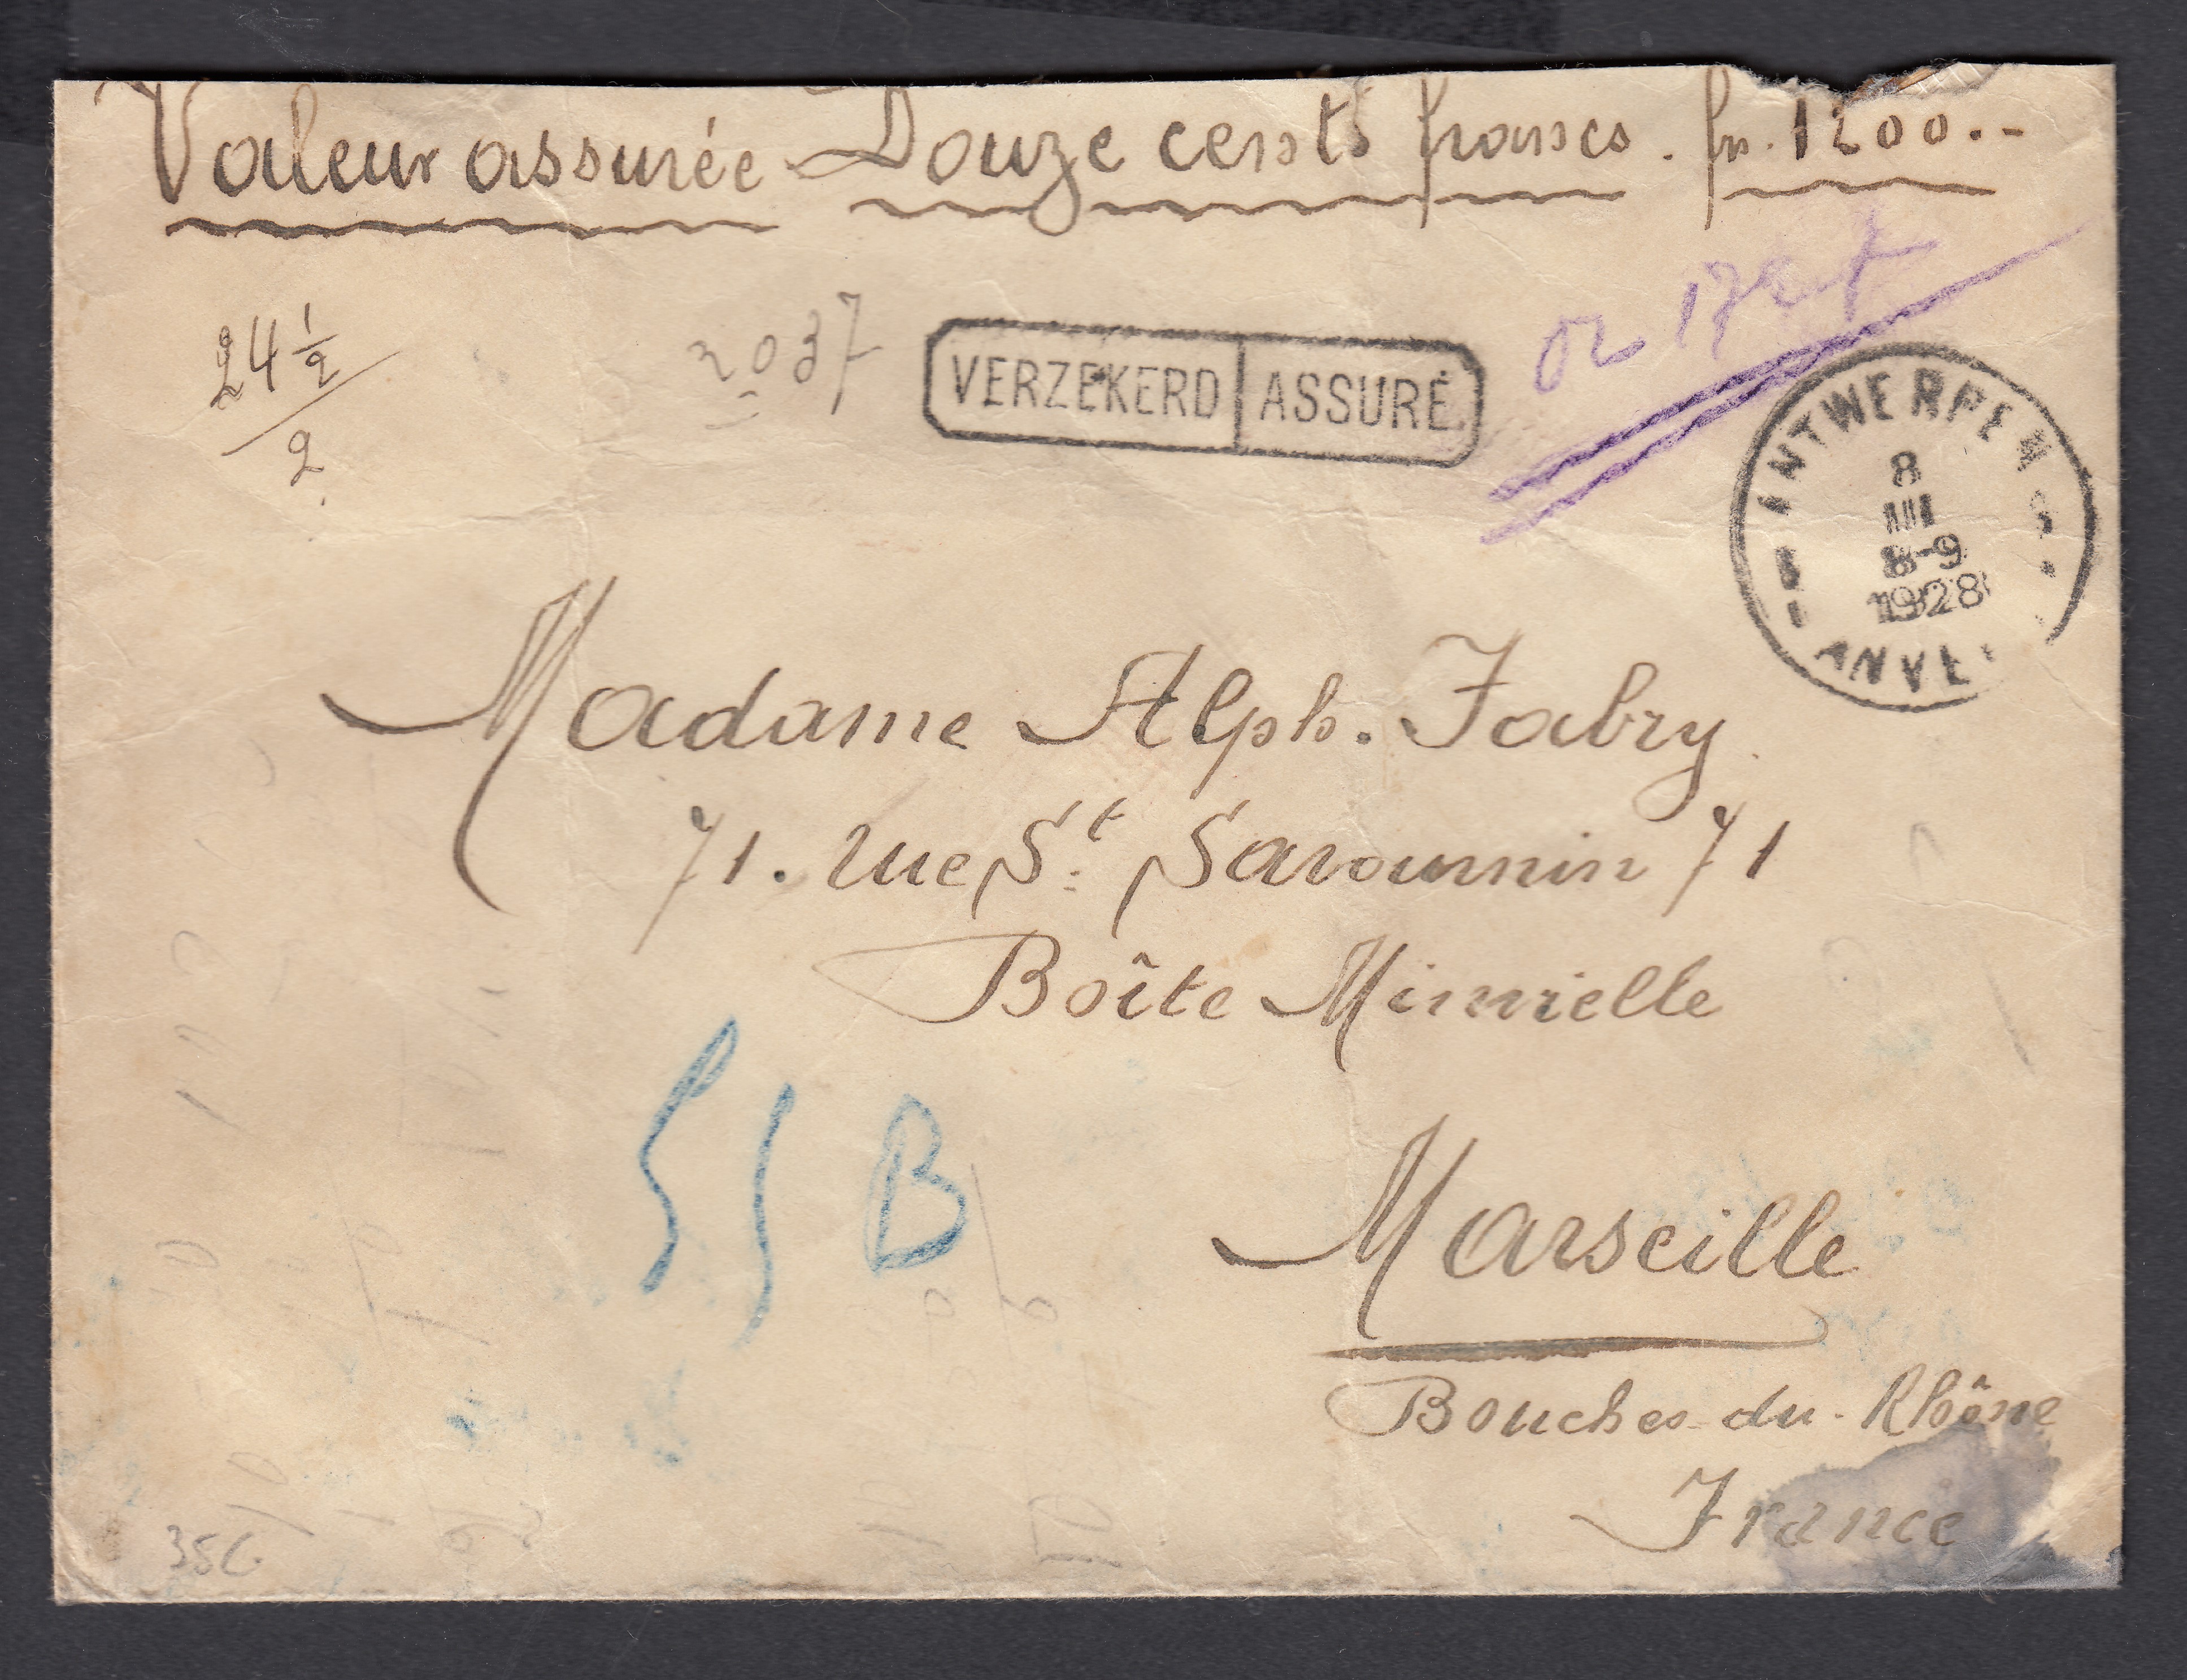 Valeur assurée Douze cents francs. fr. 1200.-
24 1/2
2
2037
VERZEKERD ASSURÉ
ANTWERPEN
8
III
8-9
1928
ANVE
Madame Alph. Fabry
71. rue St. Savournin 71
Boîte
Marseille
Bouches-du-Rhône
France
B